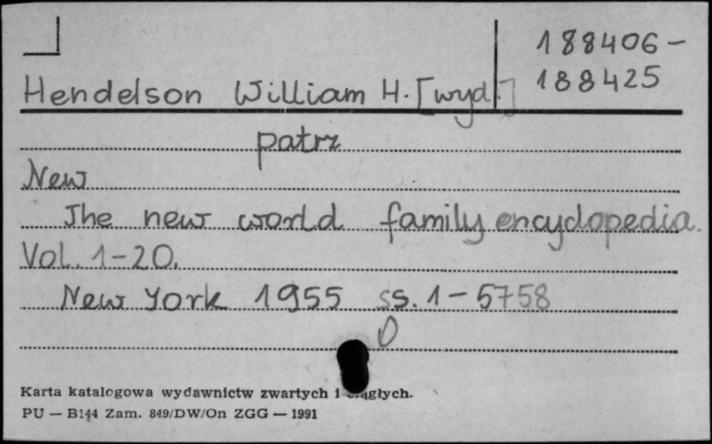 188406-
188425
Hendelson William H. [wyd.]
patrz
New
The new world family encyclopedia.
Vol. 1-20.
New York 1955 ss. 1-5758
Karta katalogowa wydawnictw zwartych i ciągłych.
PU — B144 Zam. 849/DW/On ZGG — 1991